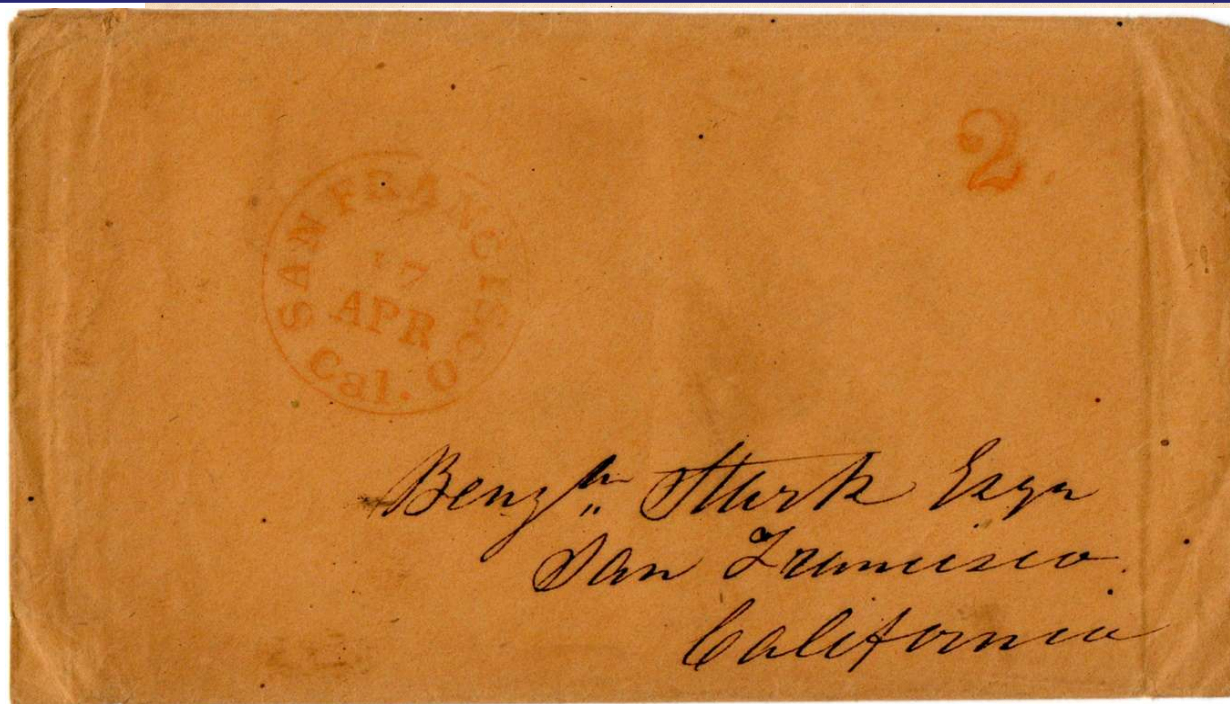 SAN FRANCISCO
Cal.
17
APR
2
Benjn Stark Esqr
San Francisco
California